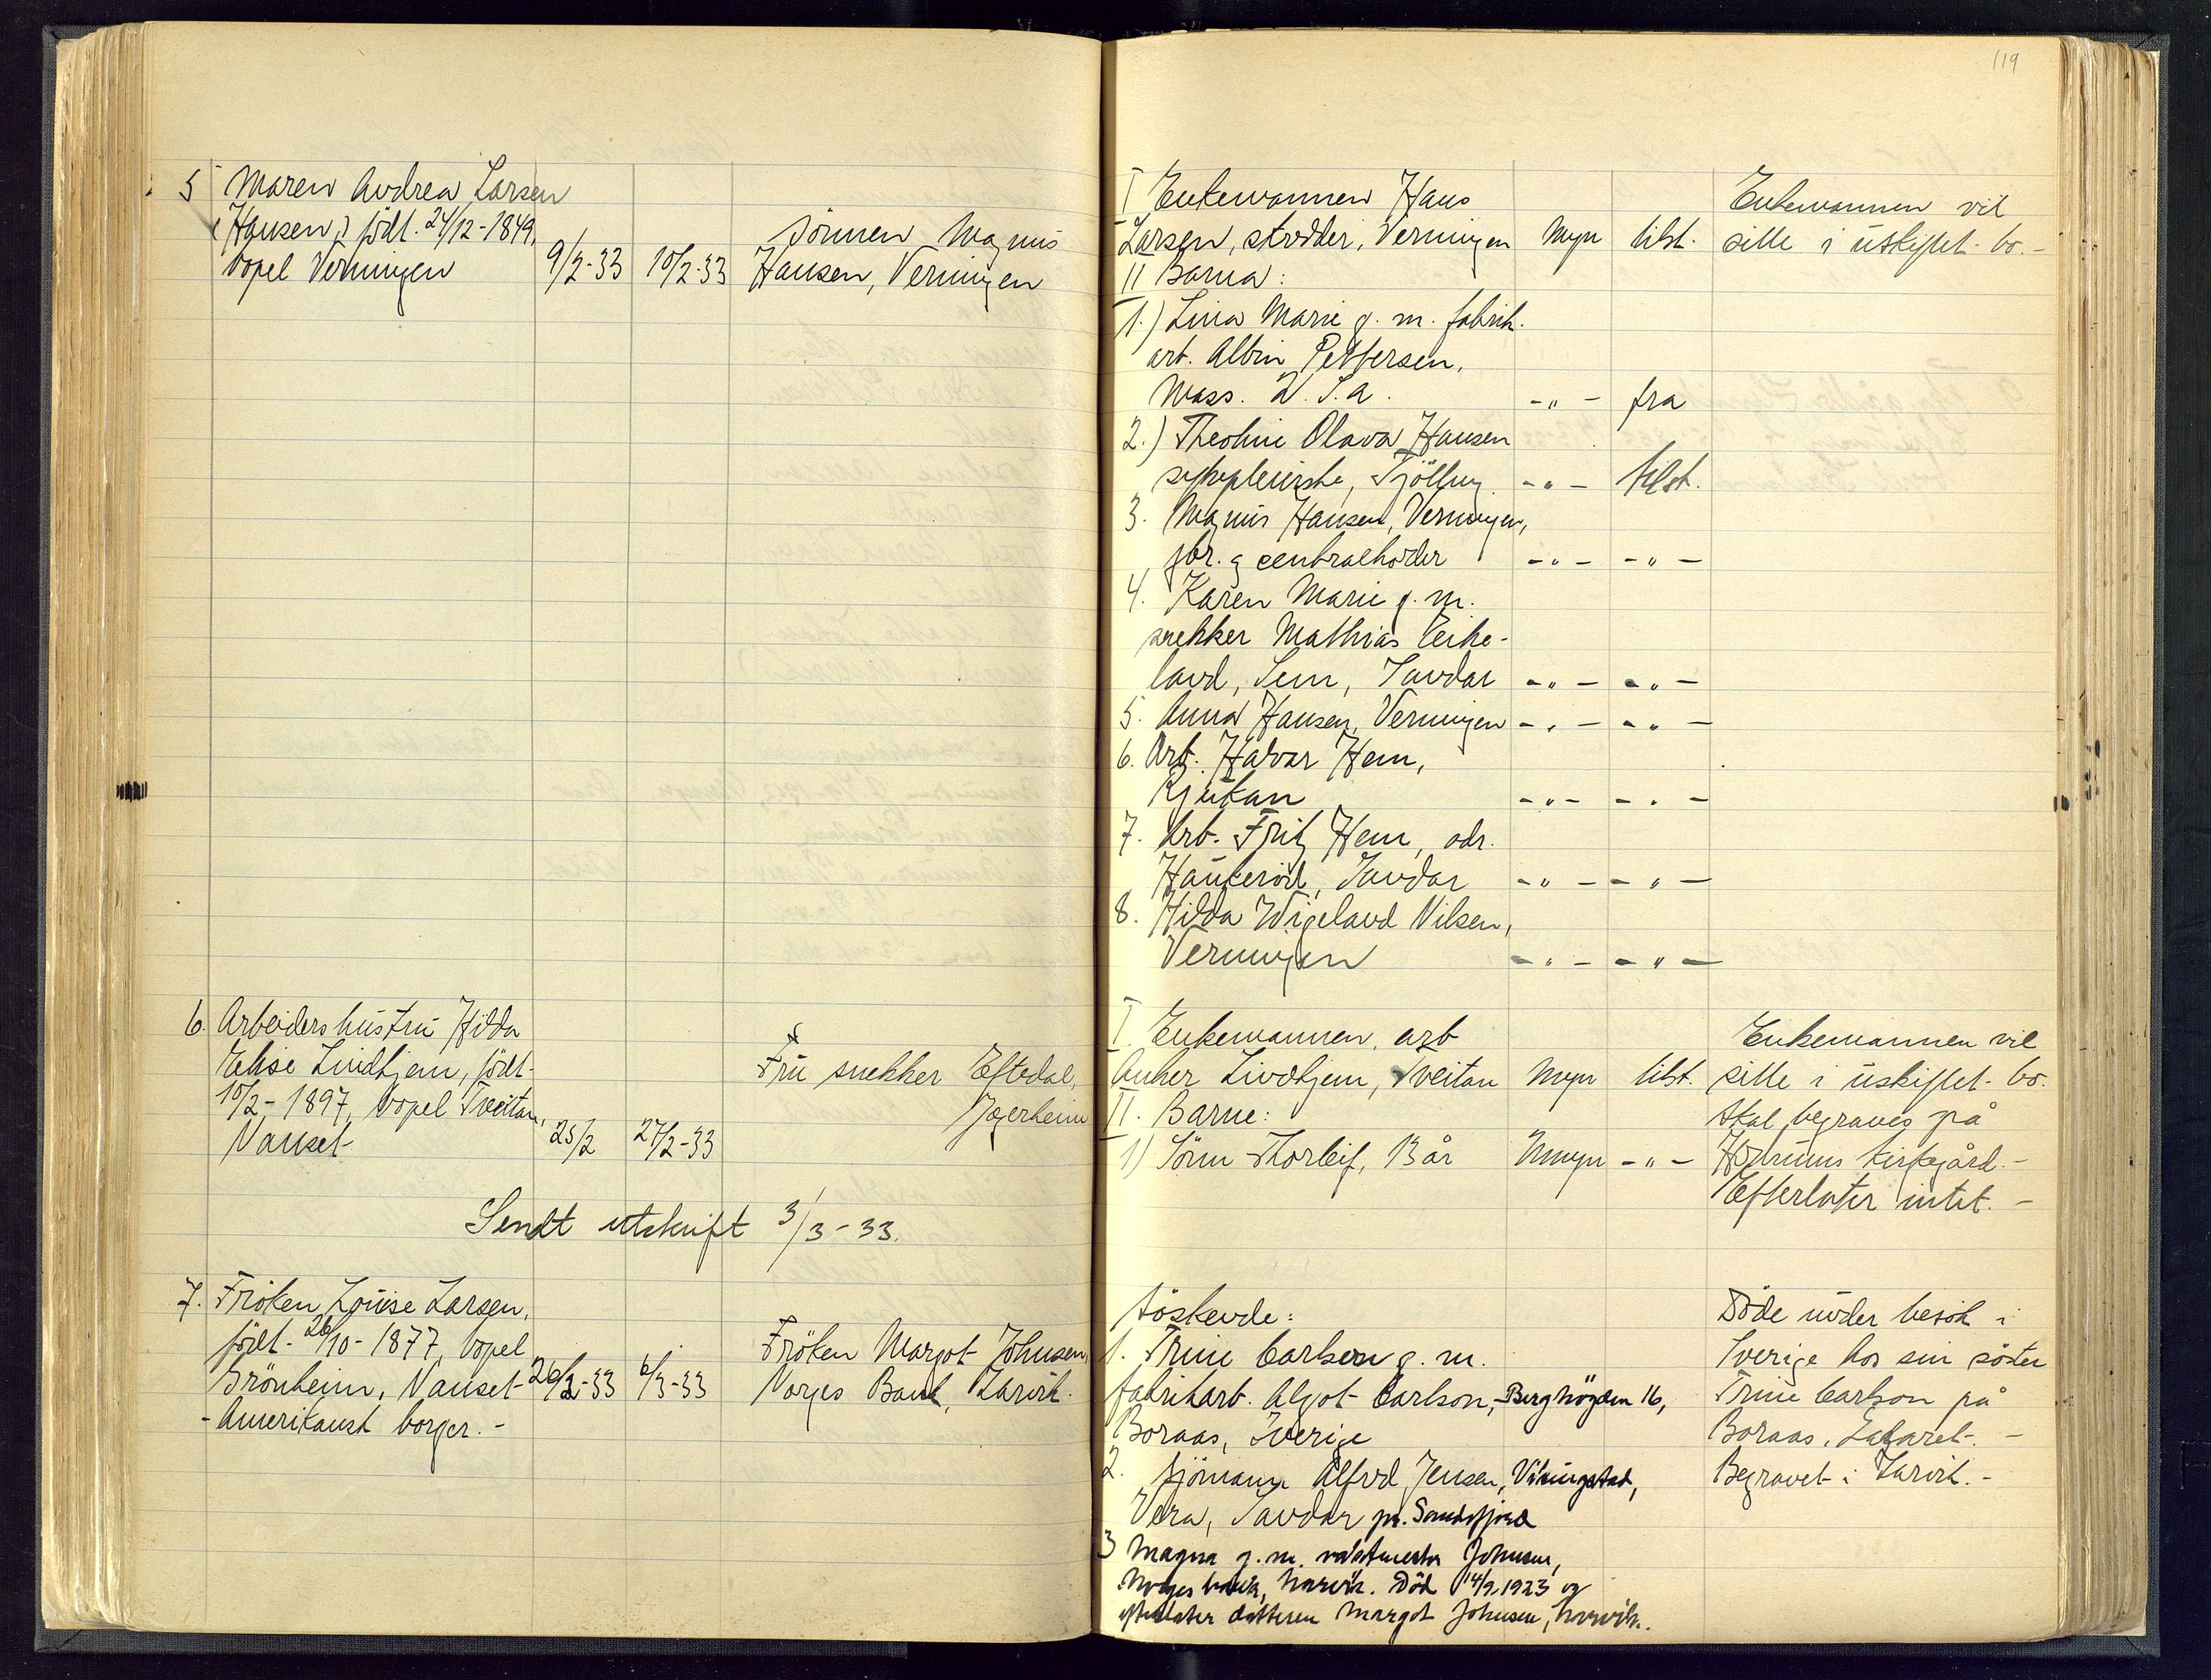 119
5 Maren Andrea Larsen
(Hansen) født. 24/12-1849,
bopel Verningen 9/2-33 10/2-33 Sönnen Magnus
Hansen, Verningen
6. Arbeidershustru Hilda
Elise Lindhjem, født-
10/2-1897, bopel Tveitan,
Nanset 25/2 27/2-33
Fru snekker Eftedal,
Jegerheim
Sendt utskrift 3/3-33.
7. Fröken Louise Larsen,
født- 26/10-1877, bopel
Grönheim, Nanset- 26/2-33 6/3-33
-Amerikansk borger.-
Fröken Margot Johnsen,
Norges Bank, Larvik.
I Enkemannen Hans
Larsen, skredder, Verningen Myn tilst.
Enkemannen vil
sitte i uskiftet bo.-
II Barna:
1.) Lina Marie g. m. fabrik.
arb. Albin Pettersen,
Mass. U.S.A. -"- fra
2.) Theoline Olava Hansen
sykepleierske, Tjölling -"- tilst.
3. Magnus Hansen, Verningen,
fbr. & centralholder -"- -"-
4. Karen Marie g. m.
snekker Mathias Eike-
land, Sem, Sandar -"- -"-
5. Anna Hansen, Verningen -"- -"-
6. Arb. Halvar Hem,
Rjukan -"- -"-
7. Arb. Fritz Hem, adr.
Haukeröd, Sandar -"- -"-
8. Hilda Wigeland Nilsen,
Verningen -"- -"-
I. Enkemannen, arb
Anker Lindhjem, Tveitan Myn tilst.
II. Barne:
1) Sönn Thorleif, 13 år Umyn -"-
Enkemannen vil
sitte i uskiftet bo.
Skal begraves på
Hedrums kirkegård.-
Efterlater intet.-
Söskende:
1. Trine Carlson g. m.
fabrikarb. Algot Carlson, -Berghögden 16,
Boraas, Sverige
2. sjömann Alfred Jensen, Vikingstad,
Vera, Sandar pr. Sandefjord
3 Magna g. m. vaktmester Johnsen,
Norges bank, Larvik. Död 14/9 1923 og
efterlater datteren Margot Johnsen, Larvik.
Döde under besök i
Sverige hos sin söster
Trine Carlson på
Boraas, Lasaret.-
Begravet i Larvik.-